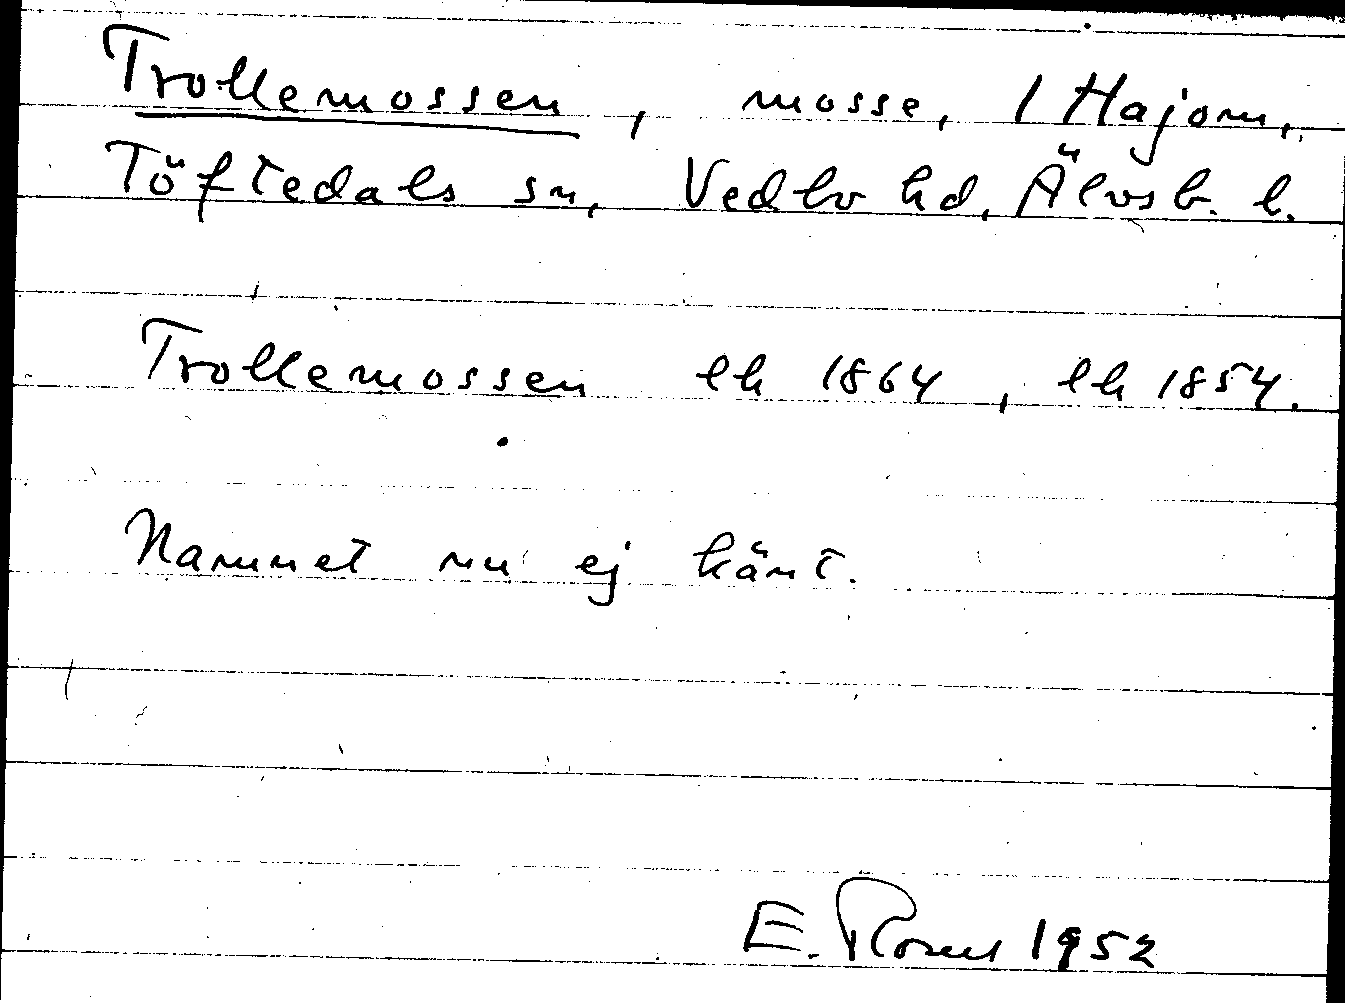 Trollemossen, mosse, 1 Hajom,
Töftedals sn, Vedbo hd, Älvsb. l.
Trollemossen lk 1864, lk 1854.
Namnet nu ej känt.
E. 1952